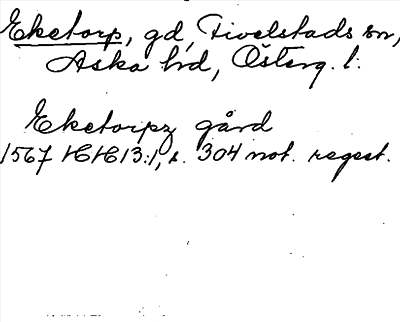 Eketorp, gd, Fivelstads sn,
Aska hd, Österg. l.
Eketorpz gård
1567 HH 13:1, s. 304 not. regest.